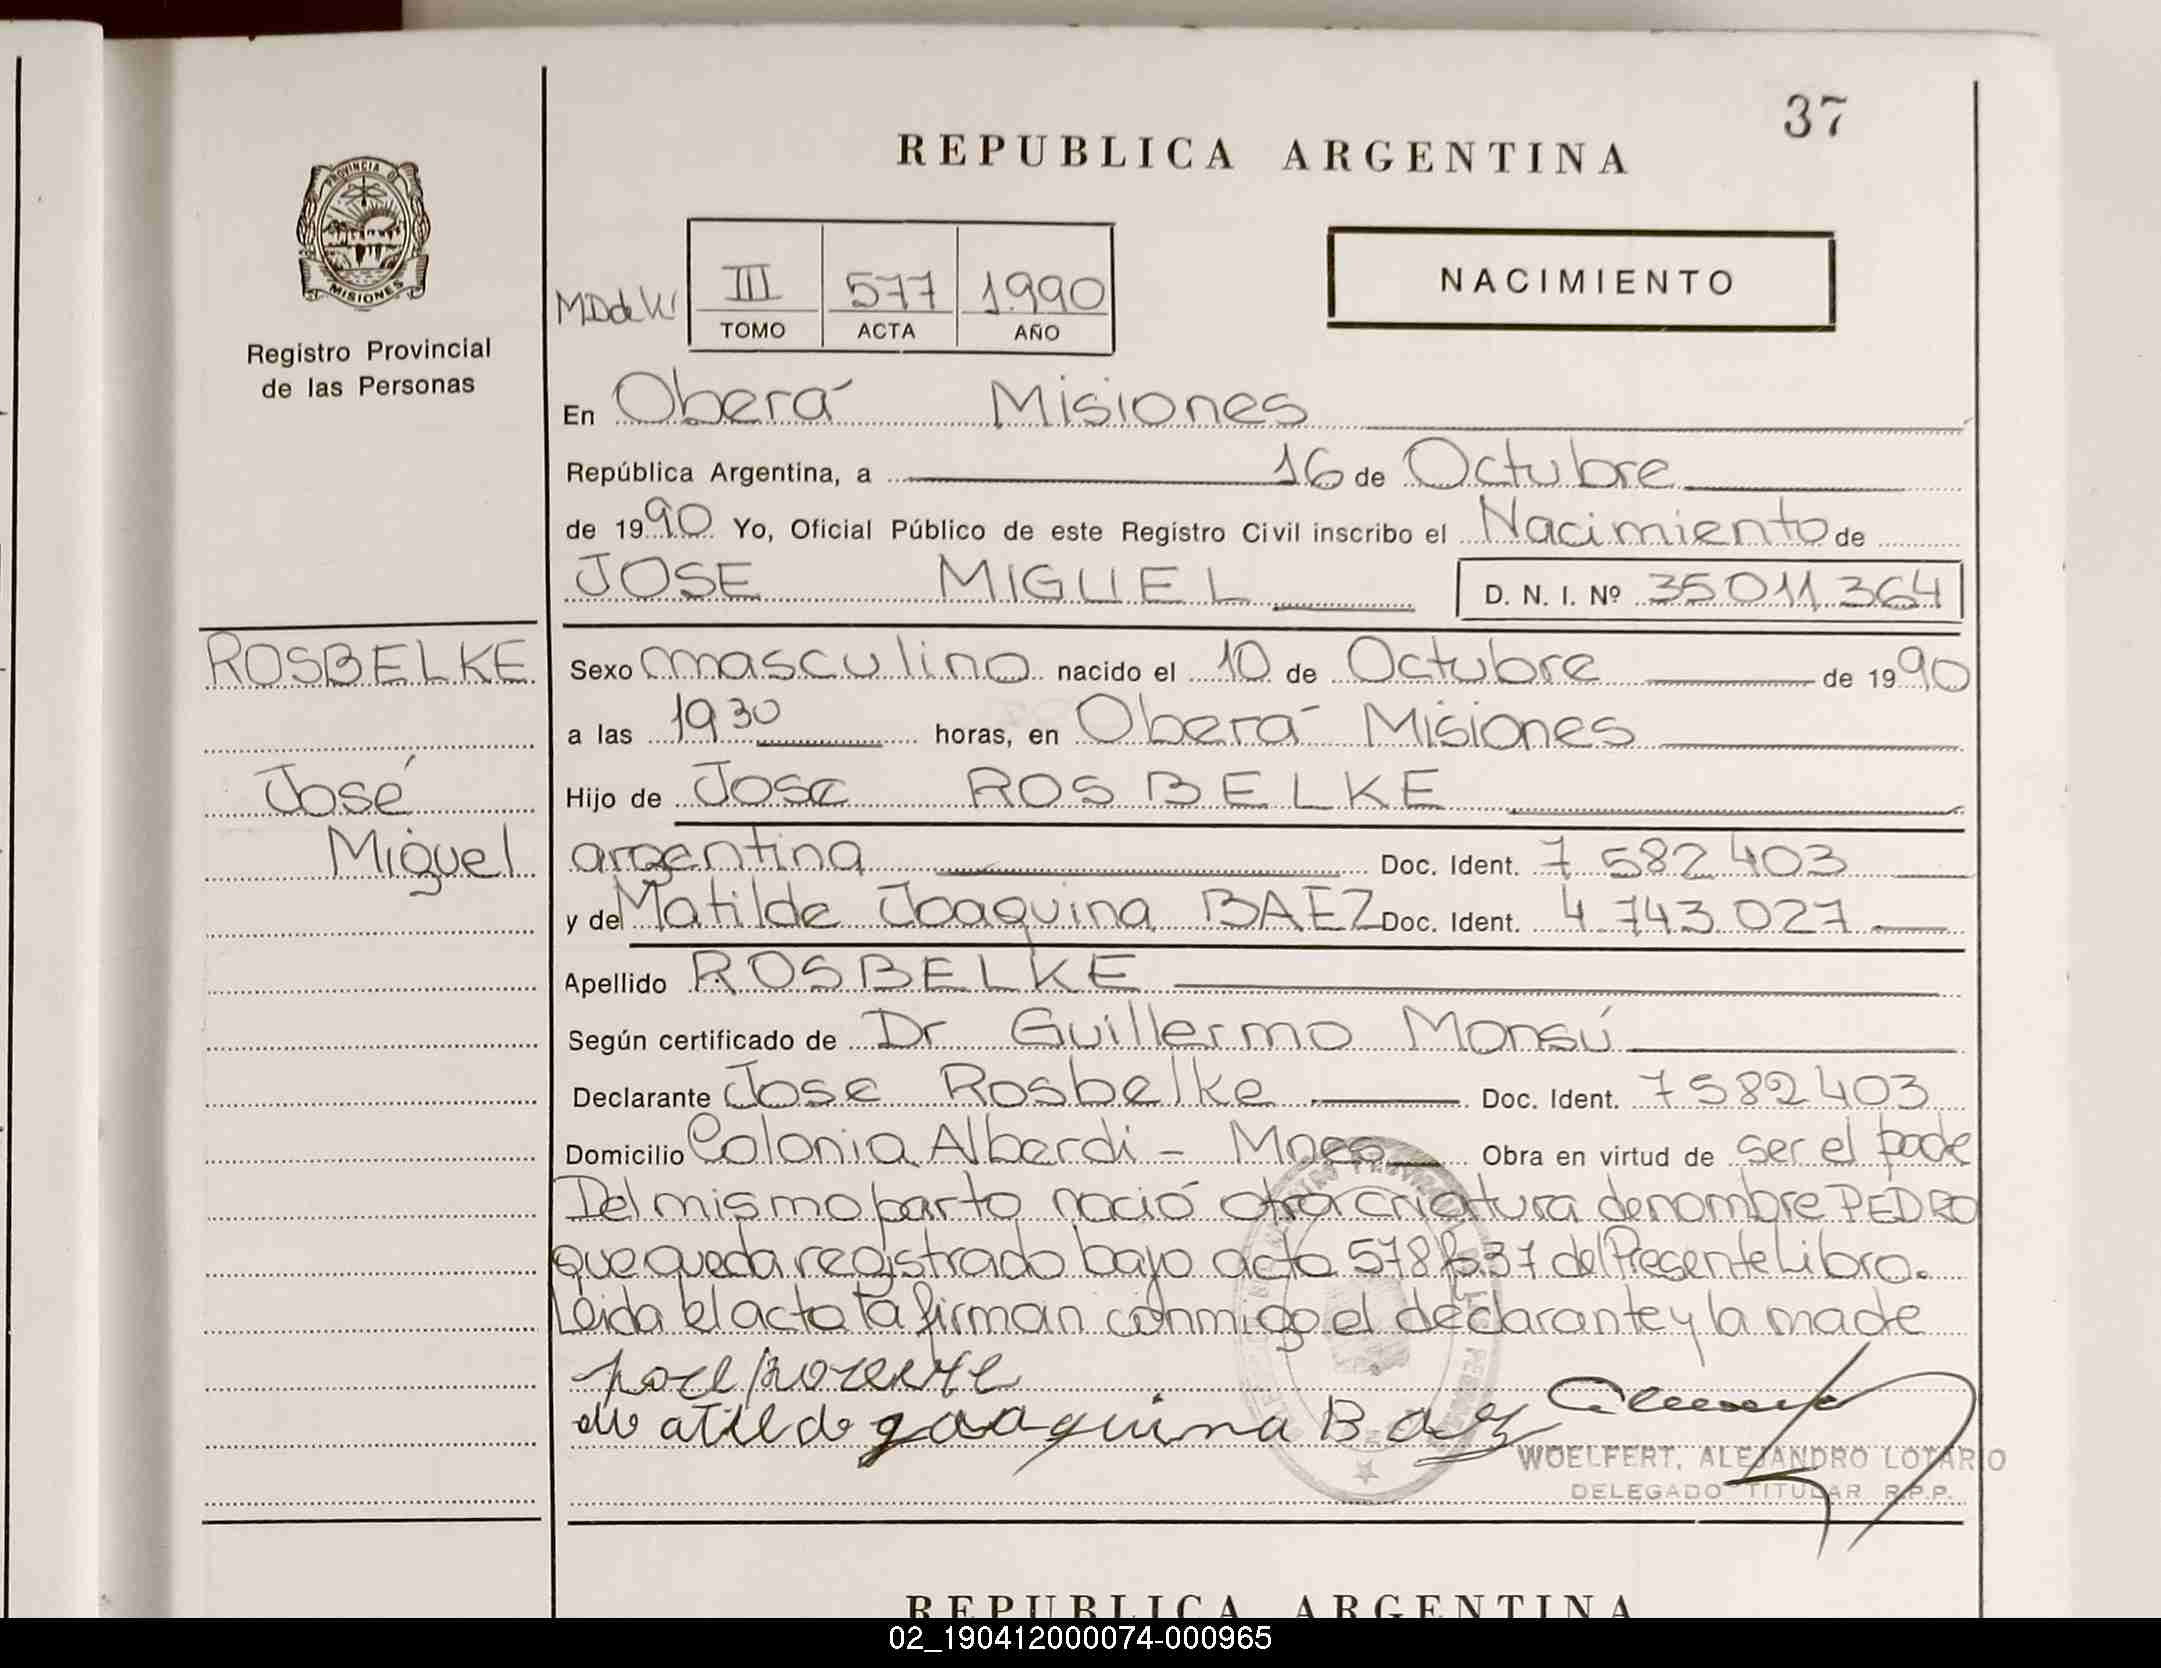 37
REPUBLICA ARGENTINA
PROVINCIA DE
MISIONES
Registro Provincial
de las Personas
III 577 1.990
TOMO ACTA AÑO
NACIMIENTO
En Oberá Misiones
República Argentina, a 16 de Octubre
de 1990 Yo, Oficial Público de este Registro Civil inscribo el Nacimiento de
JOSE MIGUEL D. N. I. Nº 35 011 364
ROSBELKE
José
Miguel
Sexo masculino nacido el 10 de Octubre de 1990
a las 19 30 horas, en Oberá Misiones
Hijo de Jose ROSBELKE
argentina Doc. Ident. 7 582 403
y de Matilde Joaquina BAEZ Doc. Ident. 4 743 027
Apellido ROSBELKE
Según certificado de Dr Guillermo Monsú
Declarante Jose Rosbelke Doc. Ident. 7 582 403
Domicilio Colonia Alberdi - Mnes Obra en virtud de ser el padre
Del mismo parto nació otra criatura de nombre PEDRO
que queda registrado bajo acta 578 fº 37 del Presente Libro.
Leida el acta la firman conmigo el declarante y la madre
Matilde Joaquina Baez
WOELFERT, ALEJANDRO LOTARIO
DELEGADO TITULAR R.P.P.
REPUBLICA ARGENTINA
02_190412000074-000965